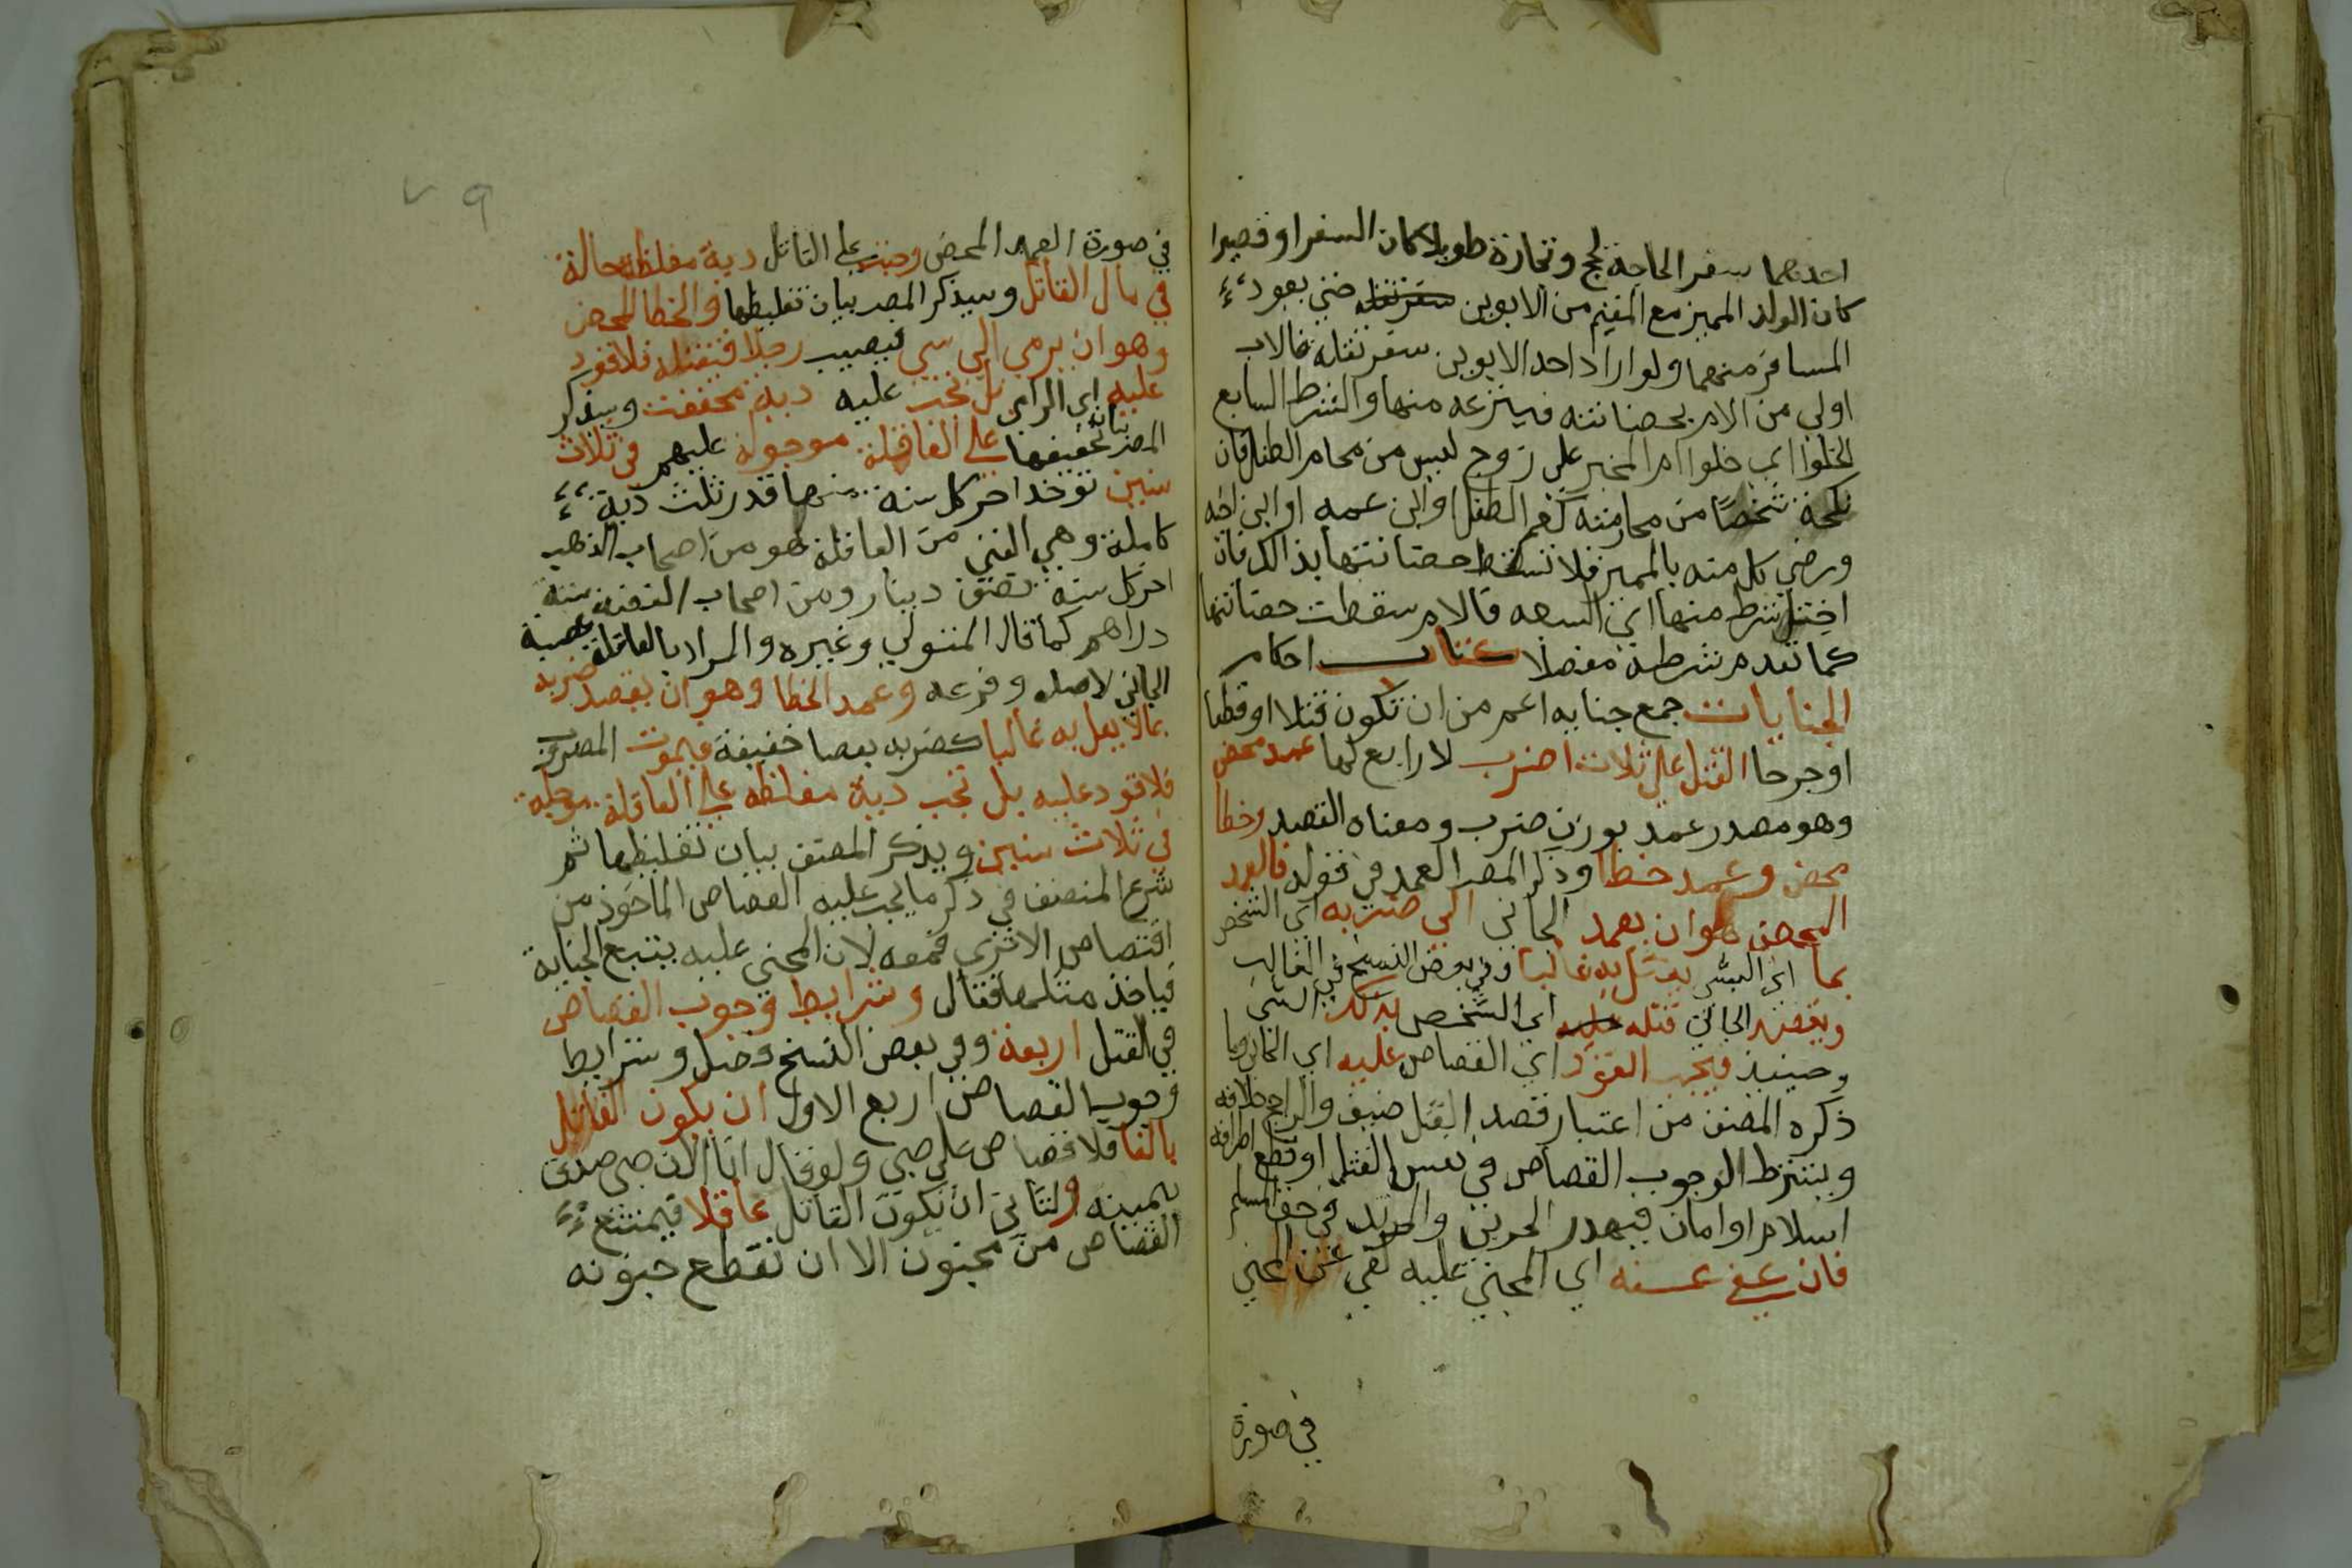 احدهما سفر الحاجة لحج وتجارة طويلا كان السفر او قصيرا
كان الولد المميز مع المقيم من الابوين سفر نقله حتى يعود
المسافر منهما ولو اراد احد الابوين سفر نقلة فالاب
اولى من الام بحضانته فينزعه منها والشرط السابع
الخلوا اي خلوا ام المميز على زوج ليس من محارم الطفل فان
نكحة شخصًا من محارمته كعم الطفل او ابن عمه او ابن اخه
ورضي كل منه بالمميز فلا تسقط حضانتها بذالك فان
اختل شرط منها اي السبعه فالام سقطت حضانتها
كما تقدم شرطه مفصلا كتاب احكام
الجنايات جمع جنايه اعم من ان تكون قتلا او قطعا
او جرحا القتل على ثلاث اضرب لا رابع لها عمد محض
وهو مصدر عمد بوزن ضرب ومعناه القصد وخطا
محض وعمد خطا وذكر المصر العمد في قوله فالعمد
المحض هو ان يعمد الجاني الى ضربه اي الشخص
بما اي الشي يقتل به غالبا وفي بعض النسخ في الغالب
ويقصد الجاني قتله عليه اي الشخص بذلك الشي
وحينيذ فيجب القود اي القصاص عليه اي الجاني وما
ذكره المصنف من اعتبار قصد القتل ضيف والراجح خلافه
ويشترط الوجوب القصاص في نفس القتل او قطع اطرافه
اسلام او امان فيهدر الحربي والمرتد في حق المسلم
فان عفى عنه اي المجني عليه لقي عن المجني
في صورة
٧٩
في صورة العمد المحض وجبت على القاتل دية مغلظة حالة
في مال القاتل وسيذكر المصر بيان تغليظها والخطا المحض
وهو ان يرمي الى شي فيصيب رجلا فيقتله فلا قود
عليه اي الرامي بل تجب عليه دية مخففت وسيذكر
المصر بيان تخفيفها على العاقلة موجولة عليهم في ثلاث
سنين توخد اخر كل سنه منها قدر ثلث دية
كاملة وهي الغني من العاقلة هو من اصحاب الذهب
اخر كل سنة نصف دينار ومن اصحاب الفضة ستة
دراهم كما قاله المتولي وغيره والمراد بالعاقلة عصبة
الجاني لاصله وفرعه وعمد الخطا وهو ان يقصد ضربه
بما لا يقل به غالبا كضربه بعصا خفيفة فيموت المضروب
فلا قود عليه بل تجب دية مغلظه على العاقلة موجله
في ثلاث سنين ويذكر المصنف بيان تغليظها ثم
شرع المنصنف في ذكر ما يجب عليه القصاص الماخوذ من
اقتصاص الاثري قمعه لان المجني عليه يتبع الجناية
فياخذ مثلها فقال وشرايط وجوب القصاص
في القتل اربعة وفي بعض النسخ وصل وشرايط
وجوب القصاص اربع الاول ان يكون القاتل
بالغا فلا قصاص على صبي ولو قال انا الان صبي صدق
بيمينه والثاني ان يكون القاتل عاقلا فيمتنع
القصاص من مجنون الا ان تقطع جنونه